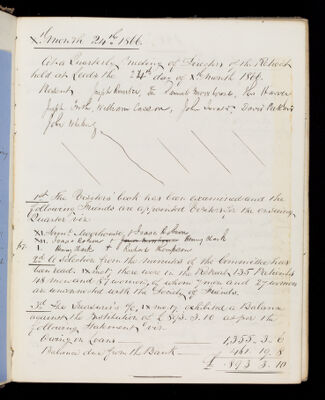 Xth month 24th 1866.
At a Quarterly Meeting of Directors of the Retreat
held at Leeds the 24th day of Xth month 1866.
Present Joseph Rowntree, Thos
Joseph Firth, William Casson, John
John Whiting
1st The Visitors' book has been examined and the
following Friends are appointed Visitors for the ensuing
Quarter viz
XI & Isaac Robson
XII. Isaac Robson & Henry Clark
I. Henry Clark & Richard Thompson
2d A selection from the minutes of the Committee has
been read. IX mo 17, there were in the Retreat, 135 Patients
48 men and 87 women, of whom 9 men and 27 women
are unconnected with the Society of Friends.
3d The Treasurer's a/c, IX mo 17 exhibited a Balance
against the Institution of £893. 3. 10 as per the
following Statement viz
Owing in Loans 1,355. 3. 6
Balance due from the Bank 461. 19. 8
£ 893. 3. 10